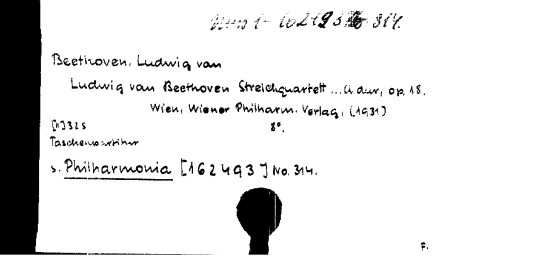 Mus 1- 162493 314.
Beethoven, Ludwig van
Ludwig van Beethoven Streichquartett ... A dur, op. 18.
Wien, Wiener Philharm. Verlag, (1931)
325 8°.
Taschenpartitur
s. Philharmonia [162493] No. 314.
F.